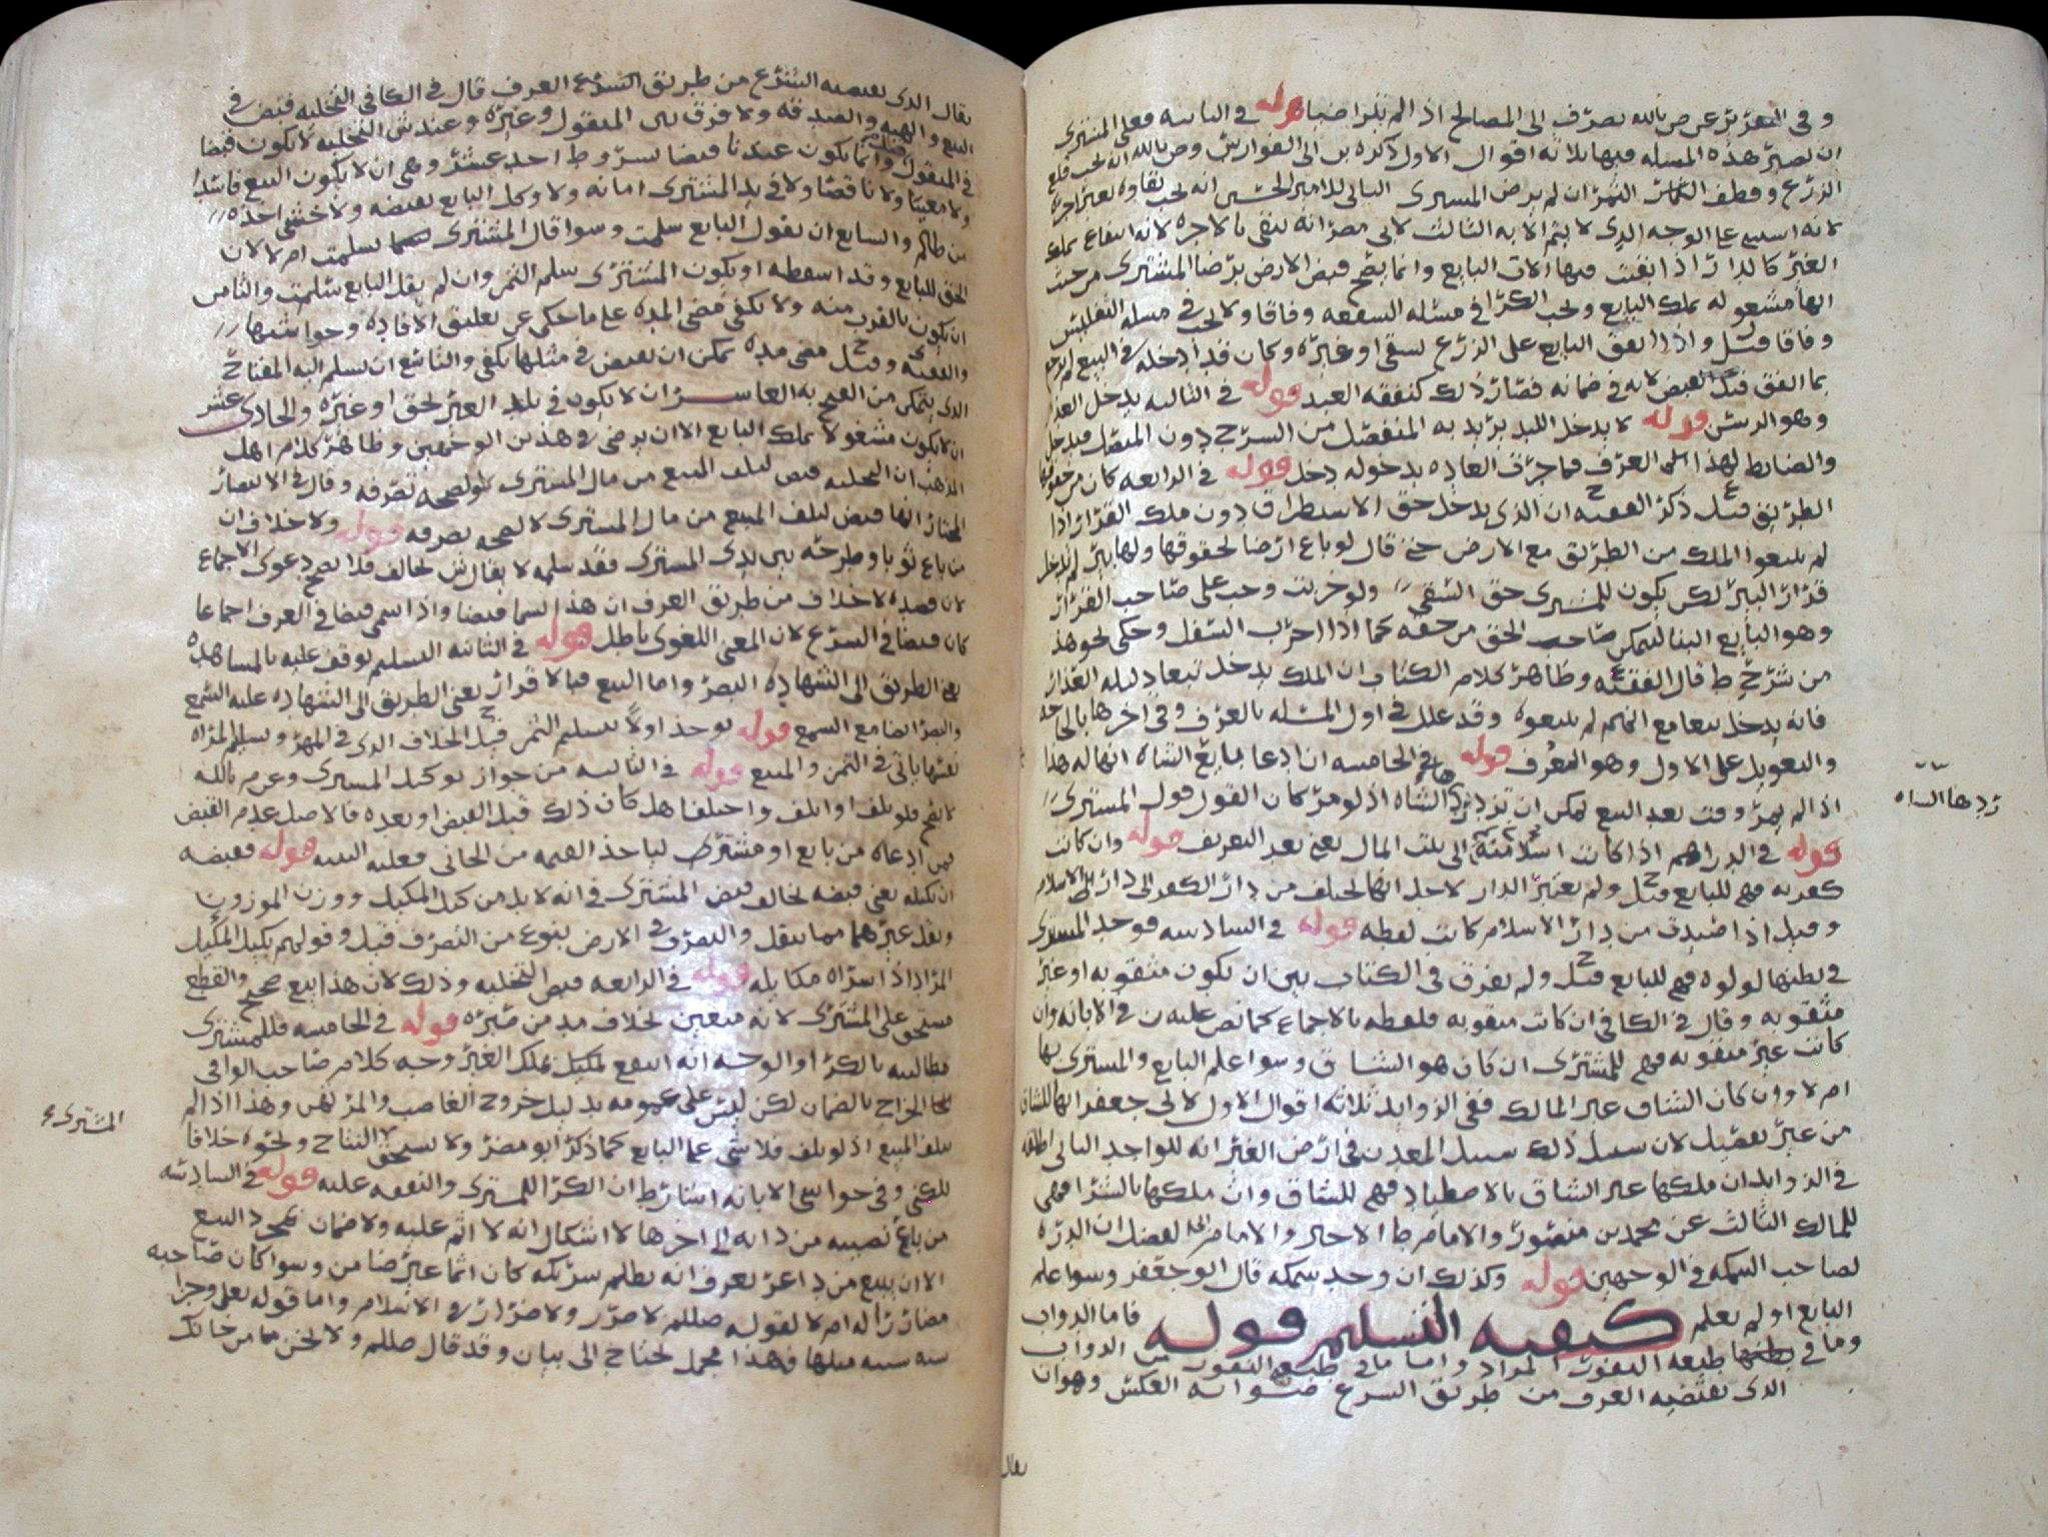 وفي التقرير عن ص بالله يصرف الى المصالح اذا لم يتراضيا قوله في الثانيه فعلى المشتري
ان يصبر هذه المسله فيها ثلاثه اقوال الاول ذكره بن ابي الفوارس وص بالله انه يجب قلع
الزرع وقطف الثمر ان لم يرض المشتري الثاني للامير الحسين انه يجب بقاوه بغير اجره
لانه استثني على الوجه الذي لا يتم الا به الثالث لابي مضر انه يبقى بالاجره لانه انتفاع بملك
الغير كالدار اذا بقيت فيها الات البايع وانما يصح قبض الارض برضا المشتري من حيث
انها مشغوله بملك البايع ويجب الكرا في مسئله الشفعه وفاقا ولا يجب في مسله التفليس
وفاقا قيل ح واذا انفق البايع على الزرع بسقي او غيره وكان قد ادخله في البيع لم يرجع
بما انفق قبل القبض لانه في ضمانه فصار ذلك كنفقه العبد قوله في الثالثه يدخل العذار
وهو الرسن قوله لا يدخل اللبد يريد به المنفصل من السرج دون المتصل فيدخل
والضابط لهذا العرف فما جرت العاده بدخوله دخل قوله في الرابعه كان من حقوقها
الطريق قيل ح ذكر الفقيه ع ان الذي يدخل حق الاستطراق دون ملك القرار اذا
لم يتبعوا الملك من الطريق مع الارض حتى قال لو باع ارضا بحقوقها ولها بير لم يدخل
قرار البير لكن يكون للمشتري حق السقي ولو خربت وجب على صاحب القرار
وهو البايع البنا ليتمكن صاحب الحق من حقه كما اذا اخرب السفل وحكي نحو هذا
من شرح ط قال الفقيه ع وظاهر كلام الكتاب ان الملك يدخل تبعا دليله العذار
فانه يدخل تبعا مع انهم لم يتبعوه وقد علل في اول المسئله بالعرف وفي اخرها بالحاجه
والتعويل على الاول وهو العرف قوله في الخامسه ان ادعا بايع الشاه انها له هذا
اذا لم يمر وقت بعد البيع يمكن ان تزدرد الشاه اذ لو مر كان القول قول المشتري
قوله في الدراهم اذا كانت اسلاميه الى بيت المال يعني بعد التعريف قوله وان كانت
كفريه فهي للبايع قيل ح ولم يعتبر الدار لاجل انها تختلف من دار الكفر الى دار الاسلام
وقيل اذا صيدت من دار الاسلام كانت لقطه قوله في السادسه فوجد المشتري
في بطنها لولوه فهي للبايع قيل ح ولم يفرق في الكتاب بين ان تكون مثقوبه او غير
مثقوبه وقال في الكافي ان كانت مثقوبه فلقطه بالاجماع كما نص عليه ن في الابانه وان
كانت غير مثقوبه فهي للمشتري ان كان هو الشاق وسوا علم البايع والمشتري بها
ام لا وان كان الشاق غير المالك ففي الزوايد ثلاثه اقوال الاول لابي جعفر انها للشاق
من غير تفصيل لان سبيل ذلك سبيل المعدن في ارض الغير انه للواجد الثاني اطلقه
في الزوايد ان ملكها غير الشاق بالاصطياد فهي للشاق وان ملكها بالشرا فهي
للمالك الثالث عن محمد بن منصور والامام ط الاخير والامام لفضل ان الدره
لصاحب السمكه في الوجهين قوله وكذلك ان وجد سمكه قال ابو جعفر وسوا علم
البايع او لم يعلم كيفيه التسليم قوله فاما الدواب
وما في طبعه النفور المراد واما ما في طبعه النفور من الدواب
الذي يقتضيه العرف من طريق الشرع صوابه العكس وهو ان
يقال
ردها الشاه
يقال الذي يقتضيه الشرع من طريق الشرع العرف قال في الكافي التخليه قبض في
البيع والهبه والصدقه ولا فرق بين المنقول وغيره وعند ش التخليه لا يكون قبضا
في المنقول قيل وانما يكون عندنا قبضا بشروط احد عشر وهي ان لا يكون البيع فاسدا
ولا معيبا ولا ناقصا ولا في يد المشتري امانه ولا وكل البايع بقبضه ولا خشي اخذه
من ظالم والسابع ان يقول البايع سلمت وسوا قال المشتري تسلمت ام لا لان
الحق للبايع وقد اسقطه او يكون المشتري سلم الثمن وان لم يقل البايع سلمت والثامن
ان يكون بالقرب منه ولا يكفي مضي المده على ما حكي عن تعليق الافاده وحواشيها
والفقيه ع وقيل ح مضي مده يمكن ان يقبض في مثلها يكفي والتاسع ان يسلم اليه المفتاح
الذي يتمكن من الفتح به العاشر ان لا يكون في يد الغير لحق او غيره والحادي عشر
ان لا يكون مشغولا بملك البايع الا ان يرضى في هذين الوجهين وظاهر كلام اهل
المذهب ان التخليه قبض لتلف المبيع من مال المشتري ولصحه تصرفه وقال في الانتصار
المختار انها قبض لتلف المبيع من مال المشتري لا لصحه تصرفه قوله ولا خلاف ان
من باع ثوبا وطرحه بين يدي المشتري فقد سلمه لا يقال ش يخالف فلا يصح دعوى الاجماع
لان قصده لا خلاف من طريق العرف ان هذا يسما قبضا واذا سمي قبضا في العرف اجماعا
كان قبضا في الشرع لان المعنى اللغوي باطل قوله في الثانيه التسليم يوقف عليه بالمشاهده
يعني الطريق الى الشهاده البصر واما البيع فبالاقرار يعني الطريق الى الشهاده عليه السمع
والبصر ايضا مع السمع قوله يوخذ اولا بتسليم الثمن قيل ح الخلاف الذي في المهر وتسليم المراه
نفسها ياتي في الثمن والمبيع قوله في الثالثه من جواز توكيل المشتري وعن م بالله
لا يصح فلو تلف او اتلف واختلفا هل كان ذلك قبل القبض او بعده فالاصل عدم القبض
فمن ادعاه من بايع او مشتري لياخذ القيمه من الجاني فعليه البينه قوله فقبضه
ان يكيله يعني قبضه يخالف قبض المشتري في انه لا بد من كيل المكيل ووزن الموزون
ونقل غيرهما مما ينقل والتصرف في الارض بنوع من التصرف قيل ع وقولهم بكيل المكيل
المراد اذا اشتراه مكايله قوله في الرابعه قبض التخليه وذلك لان هذا بيع صحيح والقطع
مستحق على المشتري لانه متعين بخلاف مد من صبره قوله في الخامسه فللمشتري
مطالبته بالكرا والوجه انه انتفع بمكيل بملك الغير وجه كلام صاحب الوافي
الخراج بالضمان لكن ليس على عمومه بدليل خروج الغاصب والمرتهن وهذا اذا لم
يتلف المبيع اذ لو تلف فلا شي على البايع كما ذكر ابو مضر ولا يستحق النتاج ونحوه خلافا
للكني وفي حواشي الابانه اشتراط ان الكرا للمشتري والنفقه عليه قوله في السادسه
من باع نصيبه من دابه الى اخرها لا اشكال انه لا اثم عليه ولا ضمان بمجرد البيع
الا ان يبيع من ذاعر يعرف انه يظلم شريكه كان اثما غير ضامن وسوا كان صاحبه
مضاررا له ام لا لقوله صللم لا ضرر ولا ضرار في الاسلام واما قوله تعالى وجزا
سيه سيه مثلها فهذا مجمل يحتاج الى بيان وقد قال صللم ولا تخن من خانك
المشتري